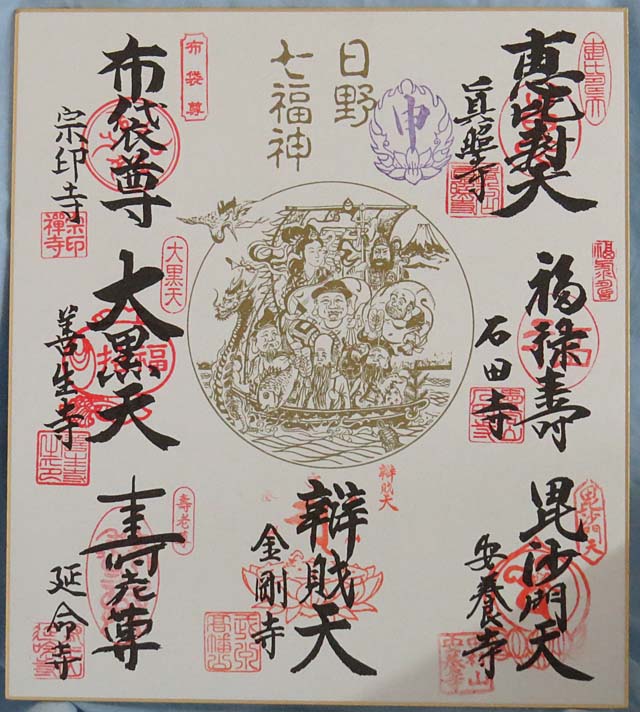 日野
七福神
申
恵比寿天
真照寺
福禄寿
石田寺
毘沙門天
毘沙門天
安養寺
辯財天
辨財天
金剛寺
布袋尊
布袋尊
宗印寺
宗印
禅寺
大黒天
大黒天
招福
善生寺
壽老尊
壽老尊
延命寺